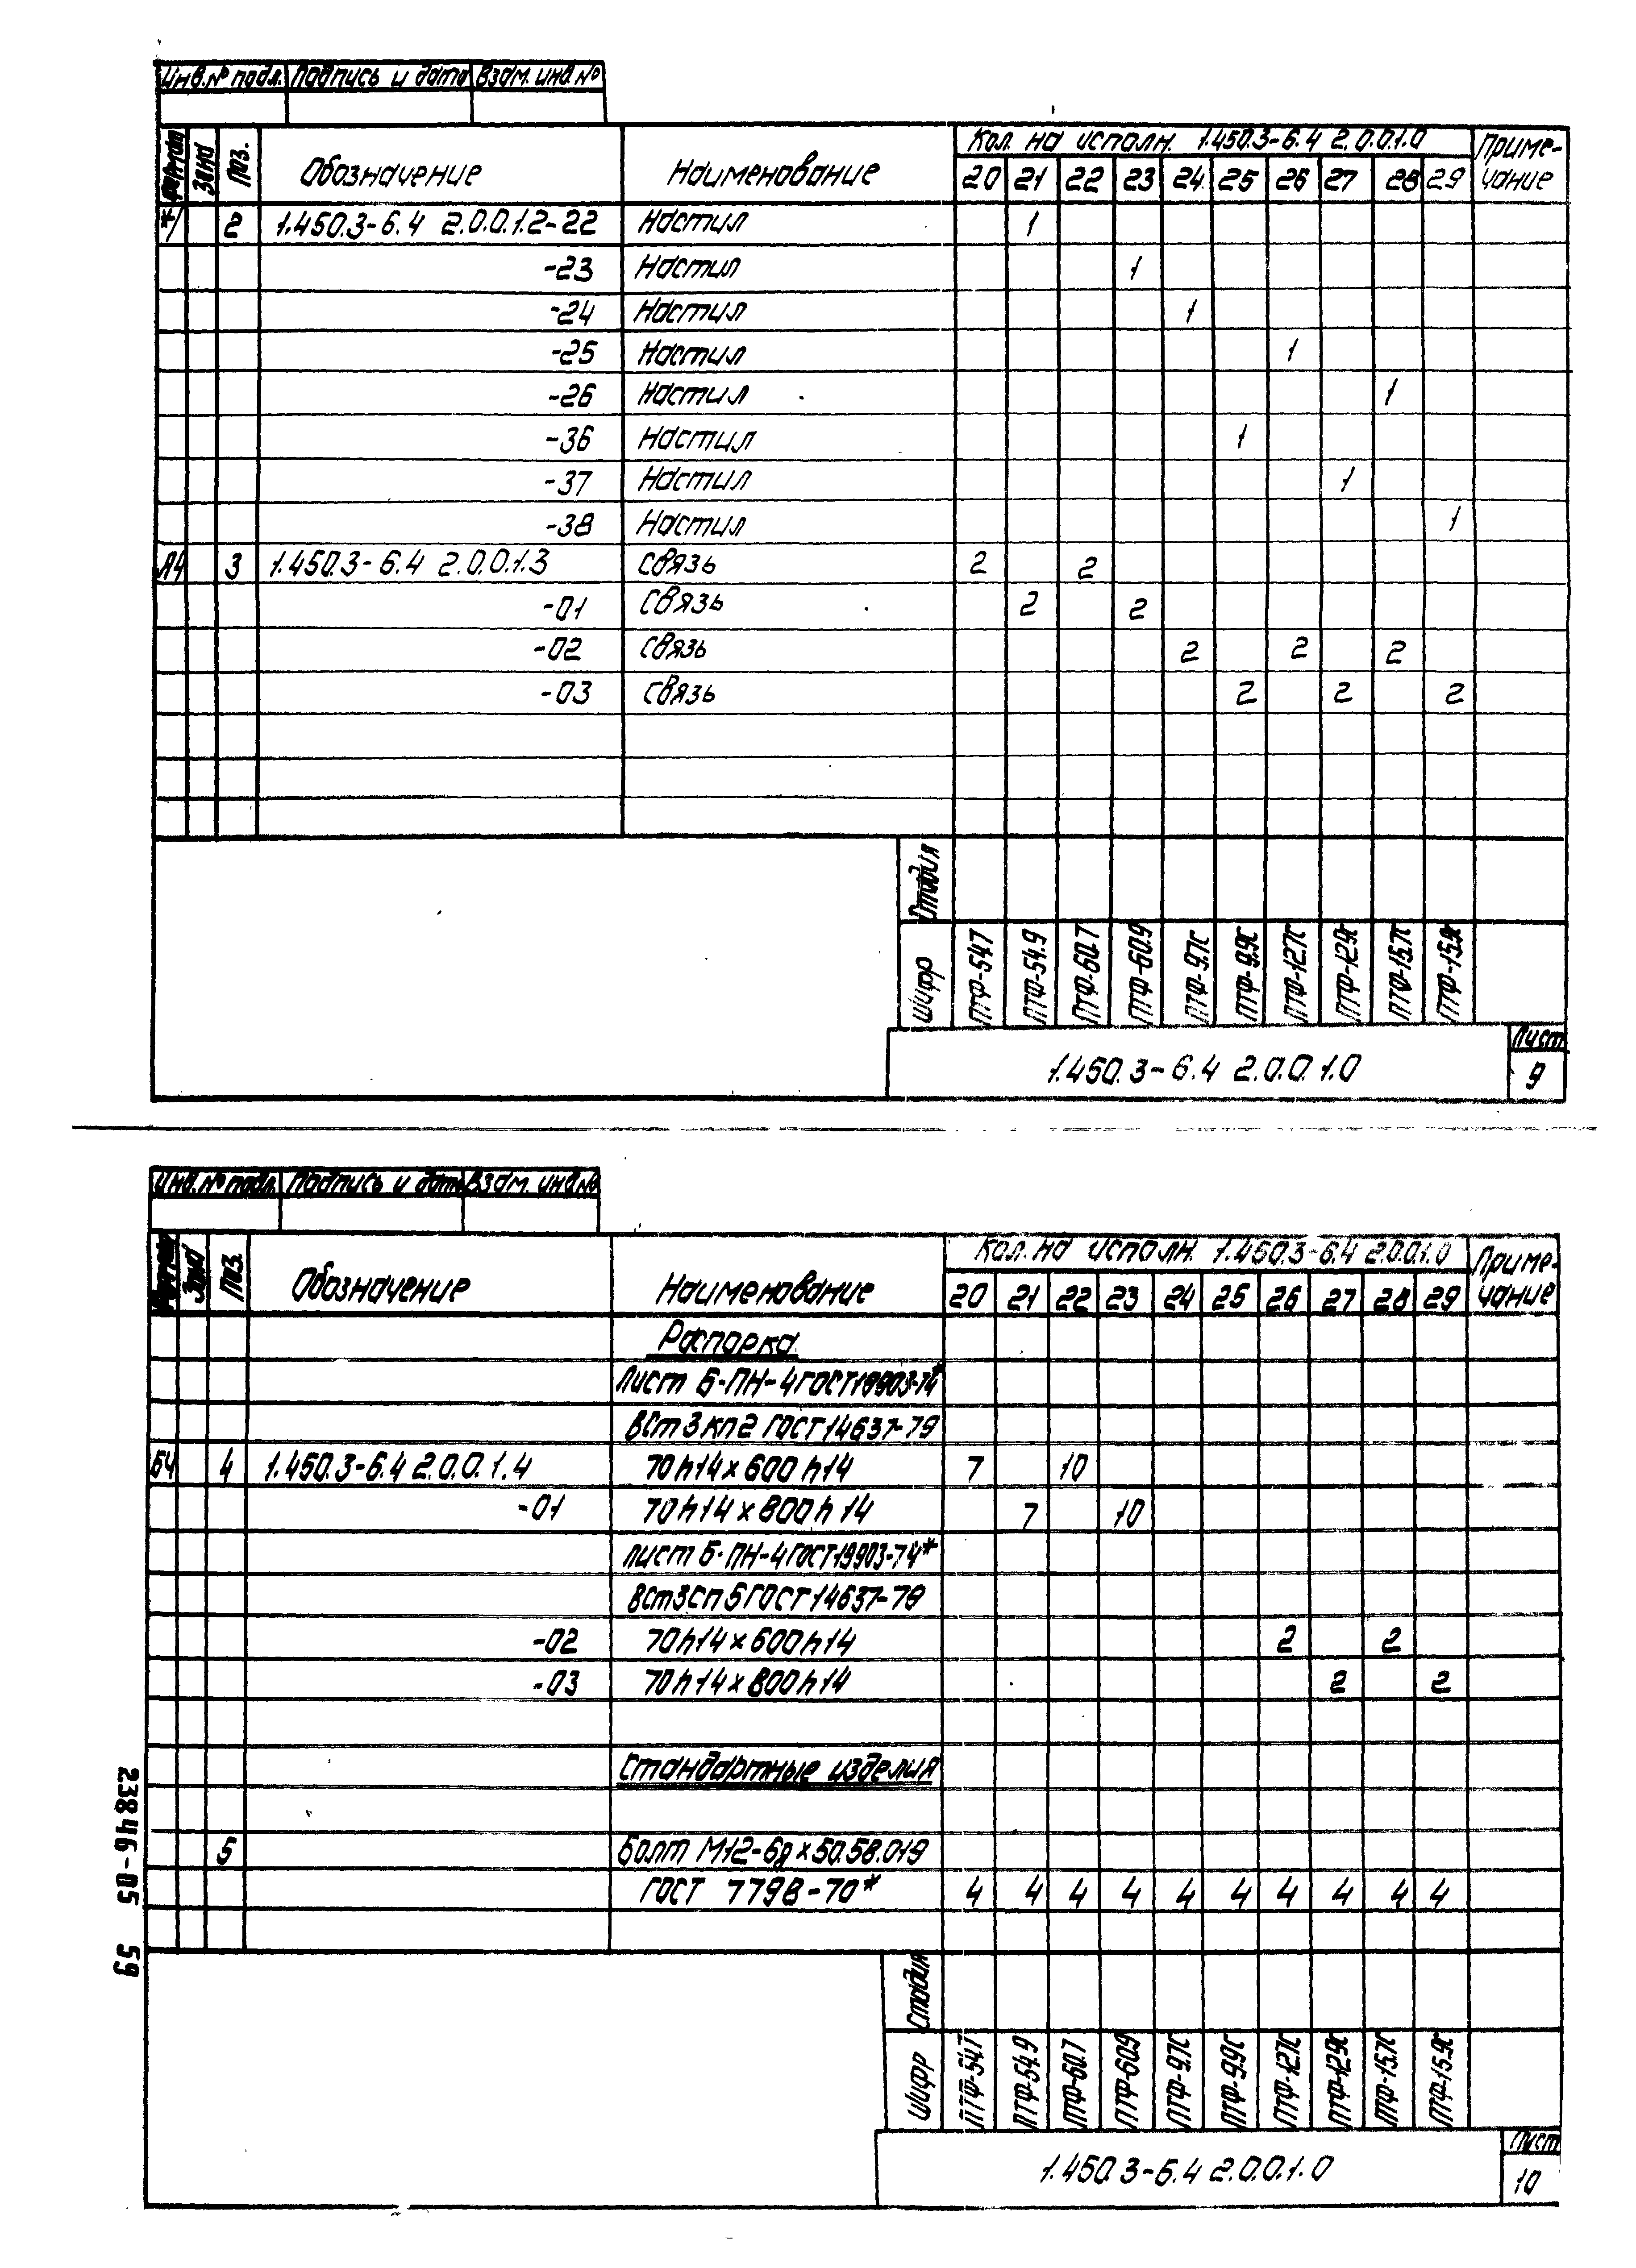 Инв.№ подл. Подпись и дата Взам. инв. №
Формат Зона Поз. Обозначение Наименование Кол. на исполн. 1.450.3-6.4 2.0.0.1.0 Приме-
чание
20 21 22 23 24 25 26 27 28 29
*/ 2 1.450.3-6.4 2.0.0.1.2-22 Настил 1
-23 Настил 1
-24 Настил 1
-25 Настил 1
-26 Настил 1
-36 Настил 1
-37 Настил 1
-38 Настил 1
А4 3 1.450.3-6.4 2.0.0.1.3 Связь 2 2
-01 Связь 2 2
-02 Связь 2 2 2
-03 Связь 2 2 2
Стадия
Шифр ПТФ-54.7 ПТФ-54.9 ПТФ-60.7 ПТФ-60.9 ПТФ-9.7С ПТФ-9.9С ПТФ-12.7С ПТФ-12.9С ПТФ-15.7С ПТФ-15.9С
1.450.3-6.4 2.0.0.1.0
Лист
9
Инв.№ подл. Подпись и дата Взам. инв.№
Формат Зона Поз. Обозначение Наименование Кол. на исполн. 1.450.3-6.4 2.0.0.1.0 Приме-
чание
20 21 22 23 24 25 26 27 28 29
Распорка
Лист Б-ПН-4 ГОСТ 19903-74*
ВСт3кп2 ГОСТ 14637-79
БЧ 4 1.450.3-6.4 2.0.0.1.4 70h14×600h14 7 10
-01 70h14×800h14 7 10
Лист Б-ПН-4 ГОСТ 19903-74*
ВСт3сп5 ГОСТ 14637-79
-02 70h14×600h14 2 2
-03 70h14×800h14 2 2
Стандартные изделия
5 Болт М12-6g×50.58.019
ГОСТ 7798-70* 4 4 4 4 4 4 4 4 4 4
Стадия
Шифр ПТФ-54.7 ПТФ-54.9 ПТФ-60.7 ПТФ-60.9 ПТФ-9.7С ПТФ-9.9С ПТФ-12.7С ПТФ-12.9С ПТФ-15.7С ПТФ-15.9С
1.450.3-6.4 2.0.0.1.0
Лист
10
23846-05 59